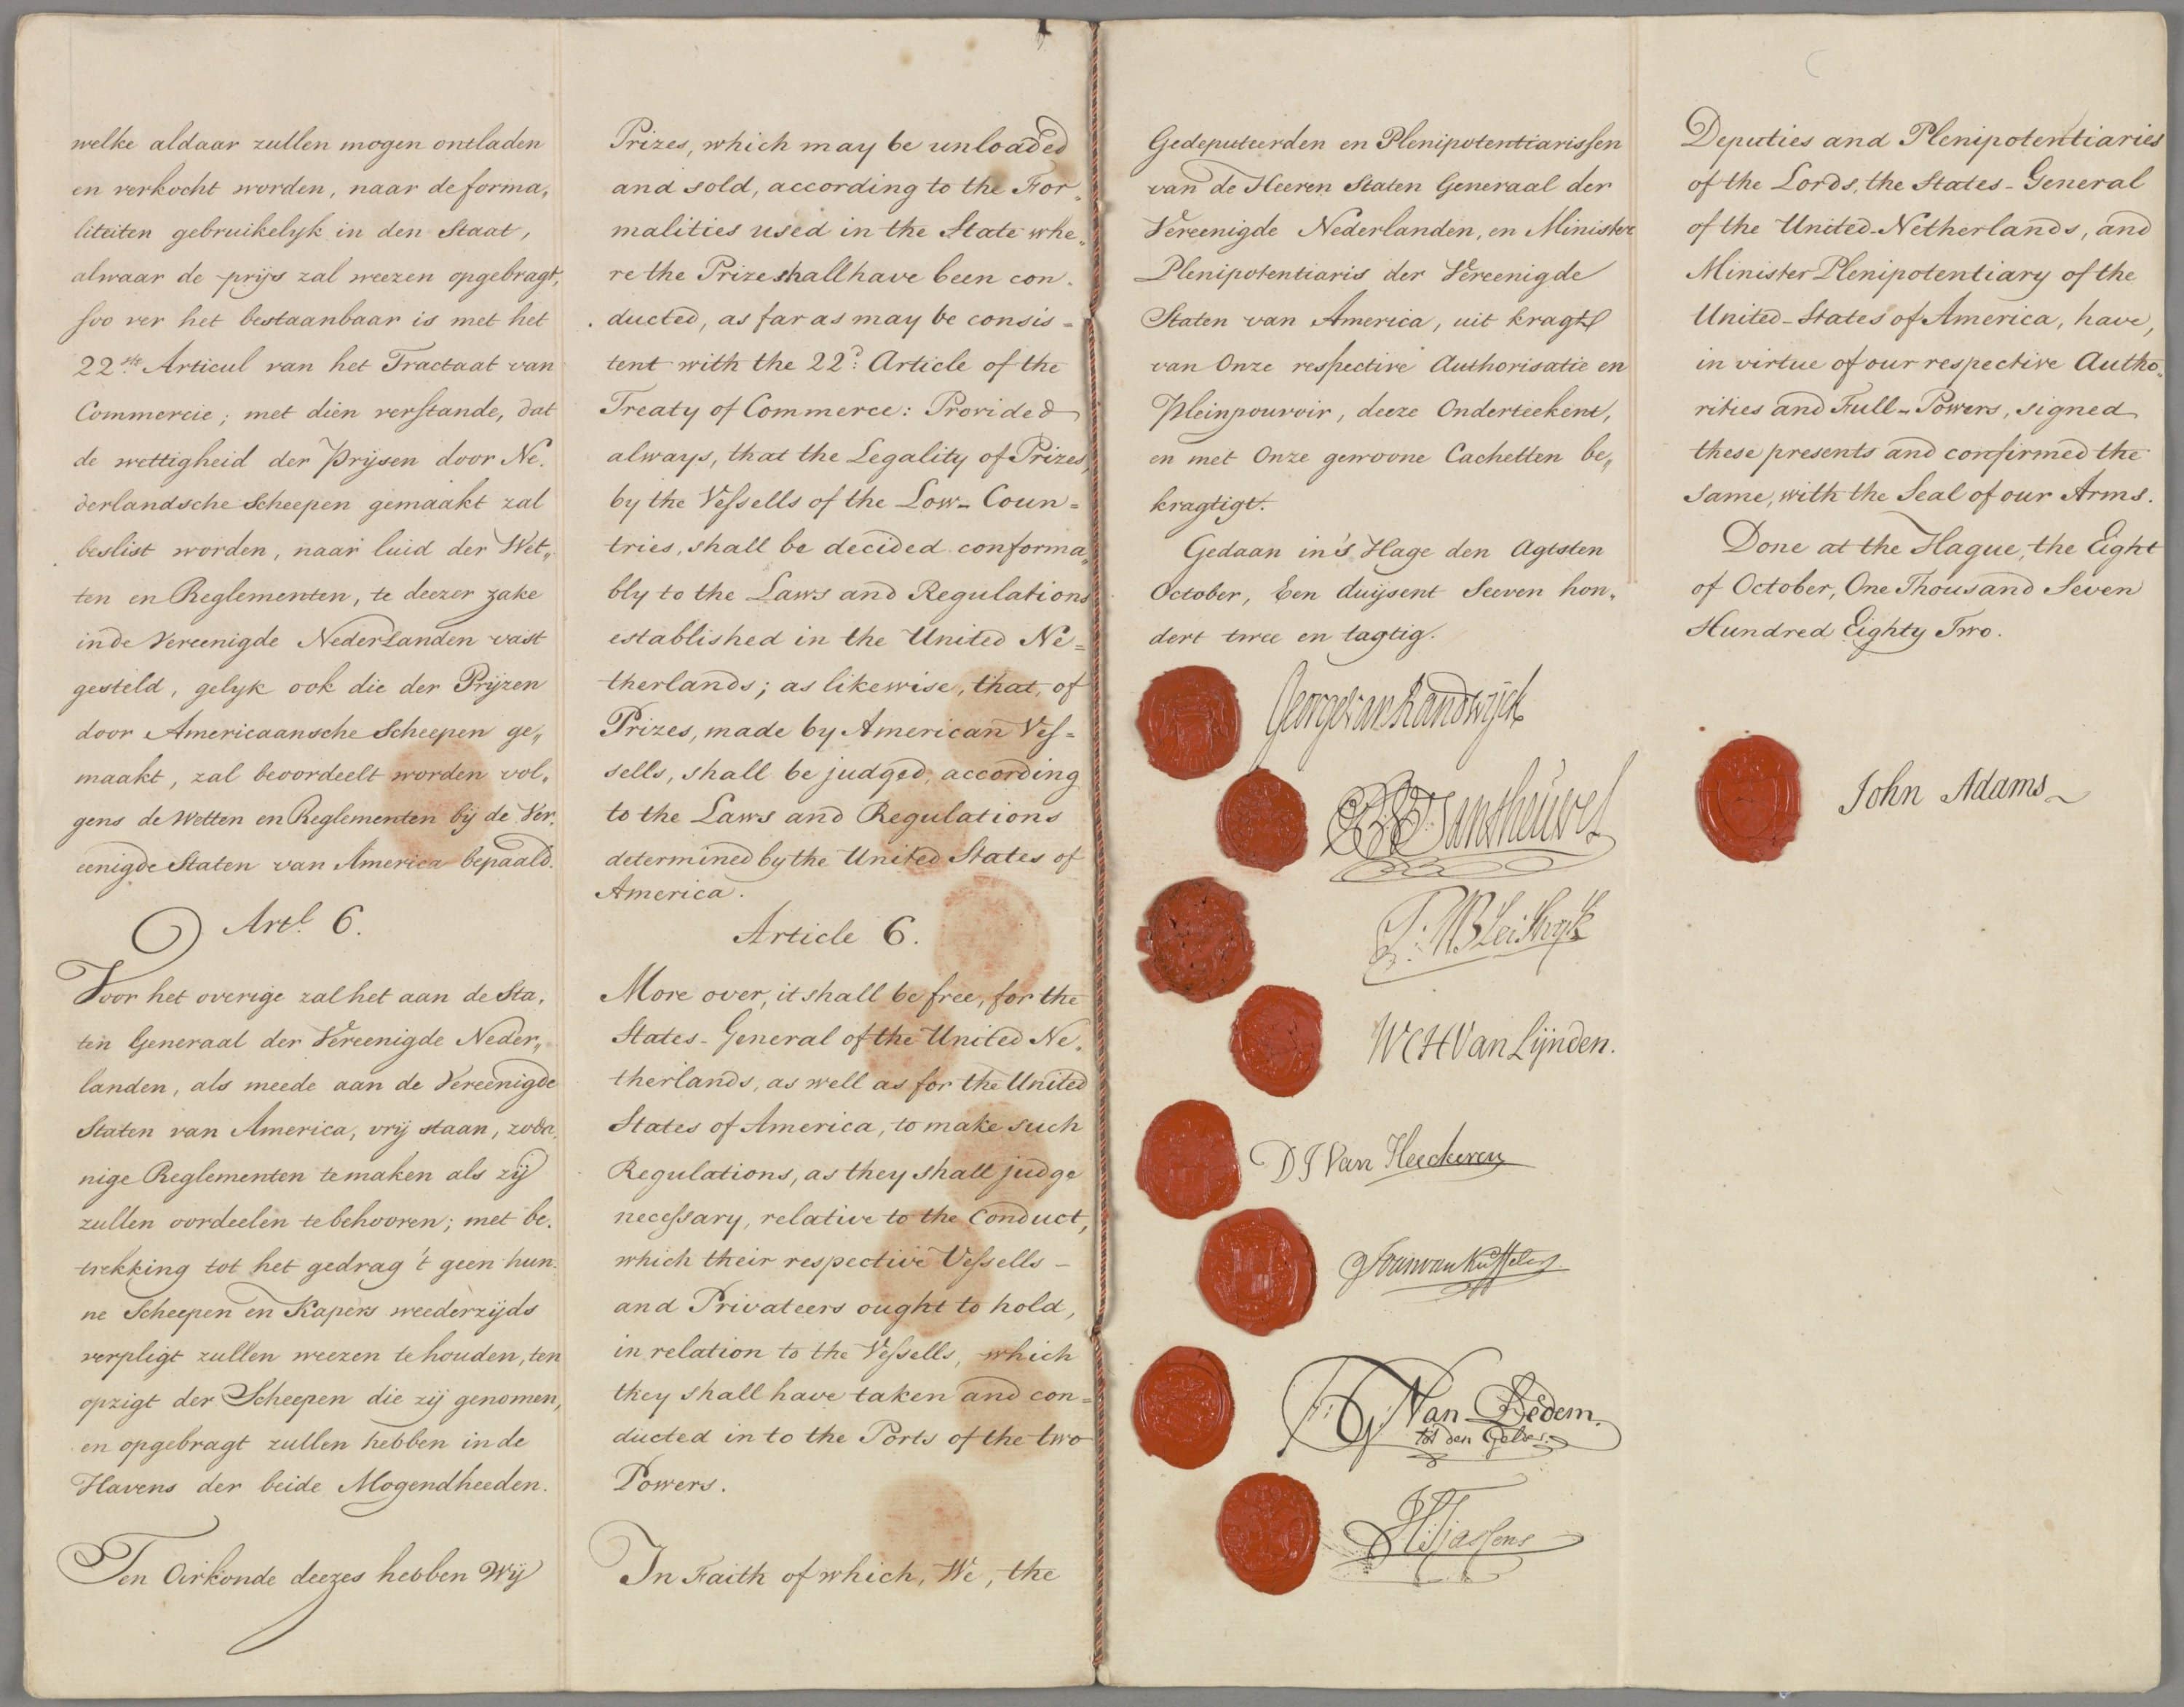 welke aldaar zullen mogen ontladen
en verkocht worden, naar de forma„
liteiten gebruikelyk in den Staat,
alwaar de prijs zal weezen opgebragt,
soo ver het bestaanbaar is met het
22ste Articul van het Tractaat van
Commercie; met dien verstande, dat
de wettigheid der Prijsen door Ne.
derlandsche Scheepen gemaakt zal
beslist worden, naar luid der Wet„
ten en Reglementen, te deezer zake
in de Vereenigde Nederlanden vast
gesteld, gelyk ook die der Prijzen
door Americaansche Scheepen ge„
maakt, zal beoordeelt worden vol„
gens de Wetten en Reglementen bij de Ver.
eenigde Staten van America bepaald.
Artl. 6.
Voor het overige zal het aan de Sta„
ten Generaal der Vereenigde Neder„
landen, als meede aan de Vereenigde
Staten van America, vrij staan, zoda„
nige Reglementen te maken als zij
zullen oordeelen te behooren; met be.
trekking tot het gedrag 't geen hun
ne Scheepen en Kapers weederzijds
verpligt zullen weezen te houden, ten
opzigt der Scheepen die zij genomen,
en opgebragt zullen hebben in de
Havens der beide Mogendheeden.
Ten Oirkonde deezes hebben Wij
Prizes, which may be unloaded
and sold, according to the For„
malities used in the State whe„
re the Prize shall have been con.
ducted, as far as may be consis=
tent with the 22d: Article of the
Treaty of Commerce: Provided
always, that the Legality of Prizes,
by the Vessells of the Low-Coun=
tries, shall be decided conforma„
bly to the Laws and Regulations
established in the United Ne=
therlands; as likewise, that, of
Prizes, made by American Ves=
sells, shall be judged, according
to the Laws and Regulations
determined by the United States of
America.
Article 6.
More over, it shall be free, for the
States-General of the United Ne„
therlands, as well as for the United
States of America, to make such
Regulations, as they shall judge
necessary, relative to the Conduct,
which their respective Vessells –
and Privateers ought to hold,
in relation to the Vessells, which
they shall have taken and con=
ducted in to the Ports of the two
Powers.
In Faith of which, We, the
Gedeputeerden en Plenipotentiarissen
van de Heeren Staten Generaal der
Vereenigde Nederlanden, en Minister
Plenipotentiaris der Vereenigde
Staten van America, uit kragte
van Onze respective Authorisatie en
Pleinpouvoir, deeze Onderteekent,
en met Onze gewoone Cachetten be„
kragtigt.
Gedaan in 's Hage den Agtsten
October, Een duijsent Seeven hon„
dert twee en tagtig.
George van Randwijck
B. V. D. Santheuvel
P. v. Bleiswijk
W C H Van Lijnden.
D J Van Heeckeren
Joan van Kuffeler
F: G: Van Dedem.
tot den Gelder.
H: Tjassens
Deputies and Plenipotentiaries
of the Lords, the States-General
of the United-Netherlands, and
Minister Plenipotentiary of the
United-States of America, have,
in virtue of our respective Autho„
rities and Full-Powers, signed
these presents and confirmed the
same, with the Seal of our Arms.
Done at the Hague, the Eight
of October, One Thousand Seven
Hundred Eighty Two.
John Adams